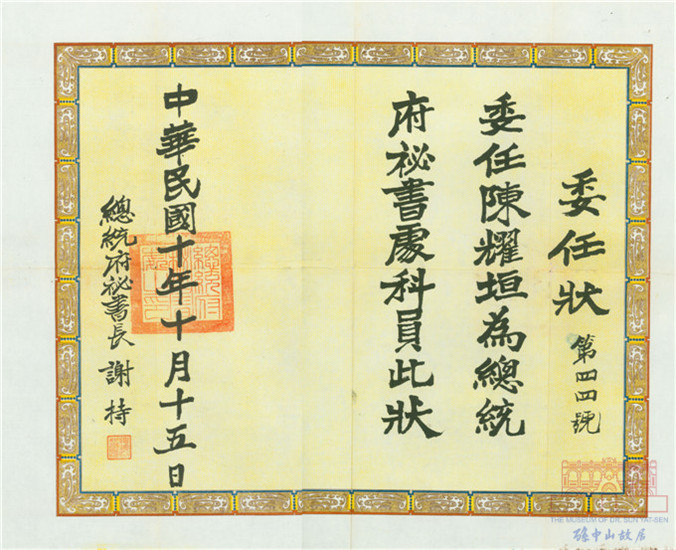 委任狀
第四四號
委任陳耀垣為總統
府祕書處科員此狀
中華民國十年十月十五日
總統府祕書長 謝持
THE MUSEUM OF DR. SUN YAT-SEN
孫中山故居